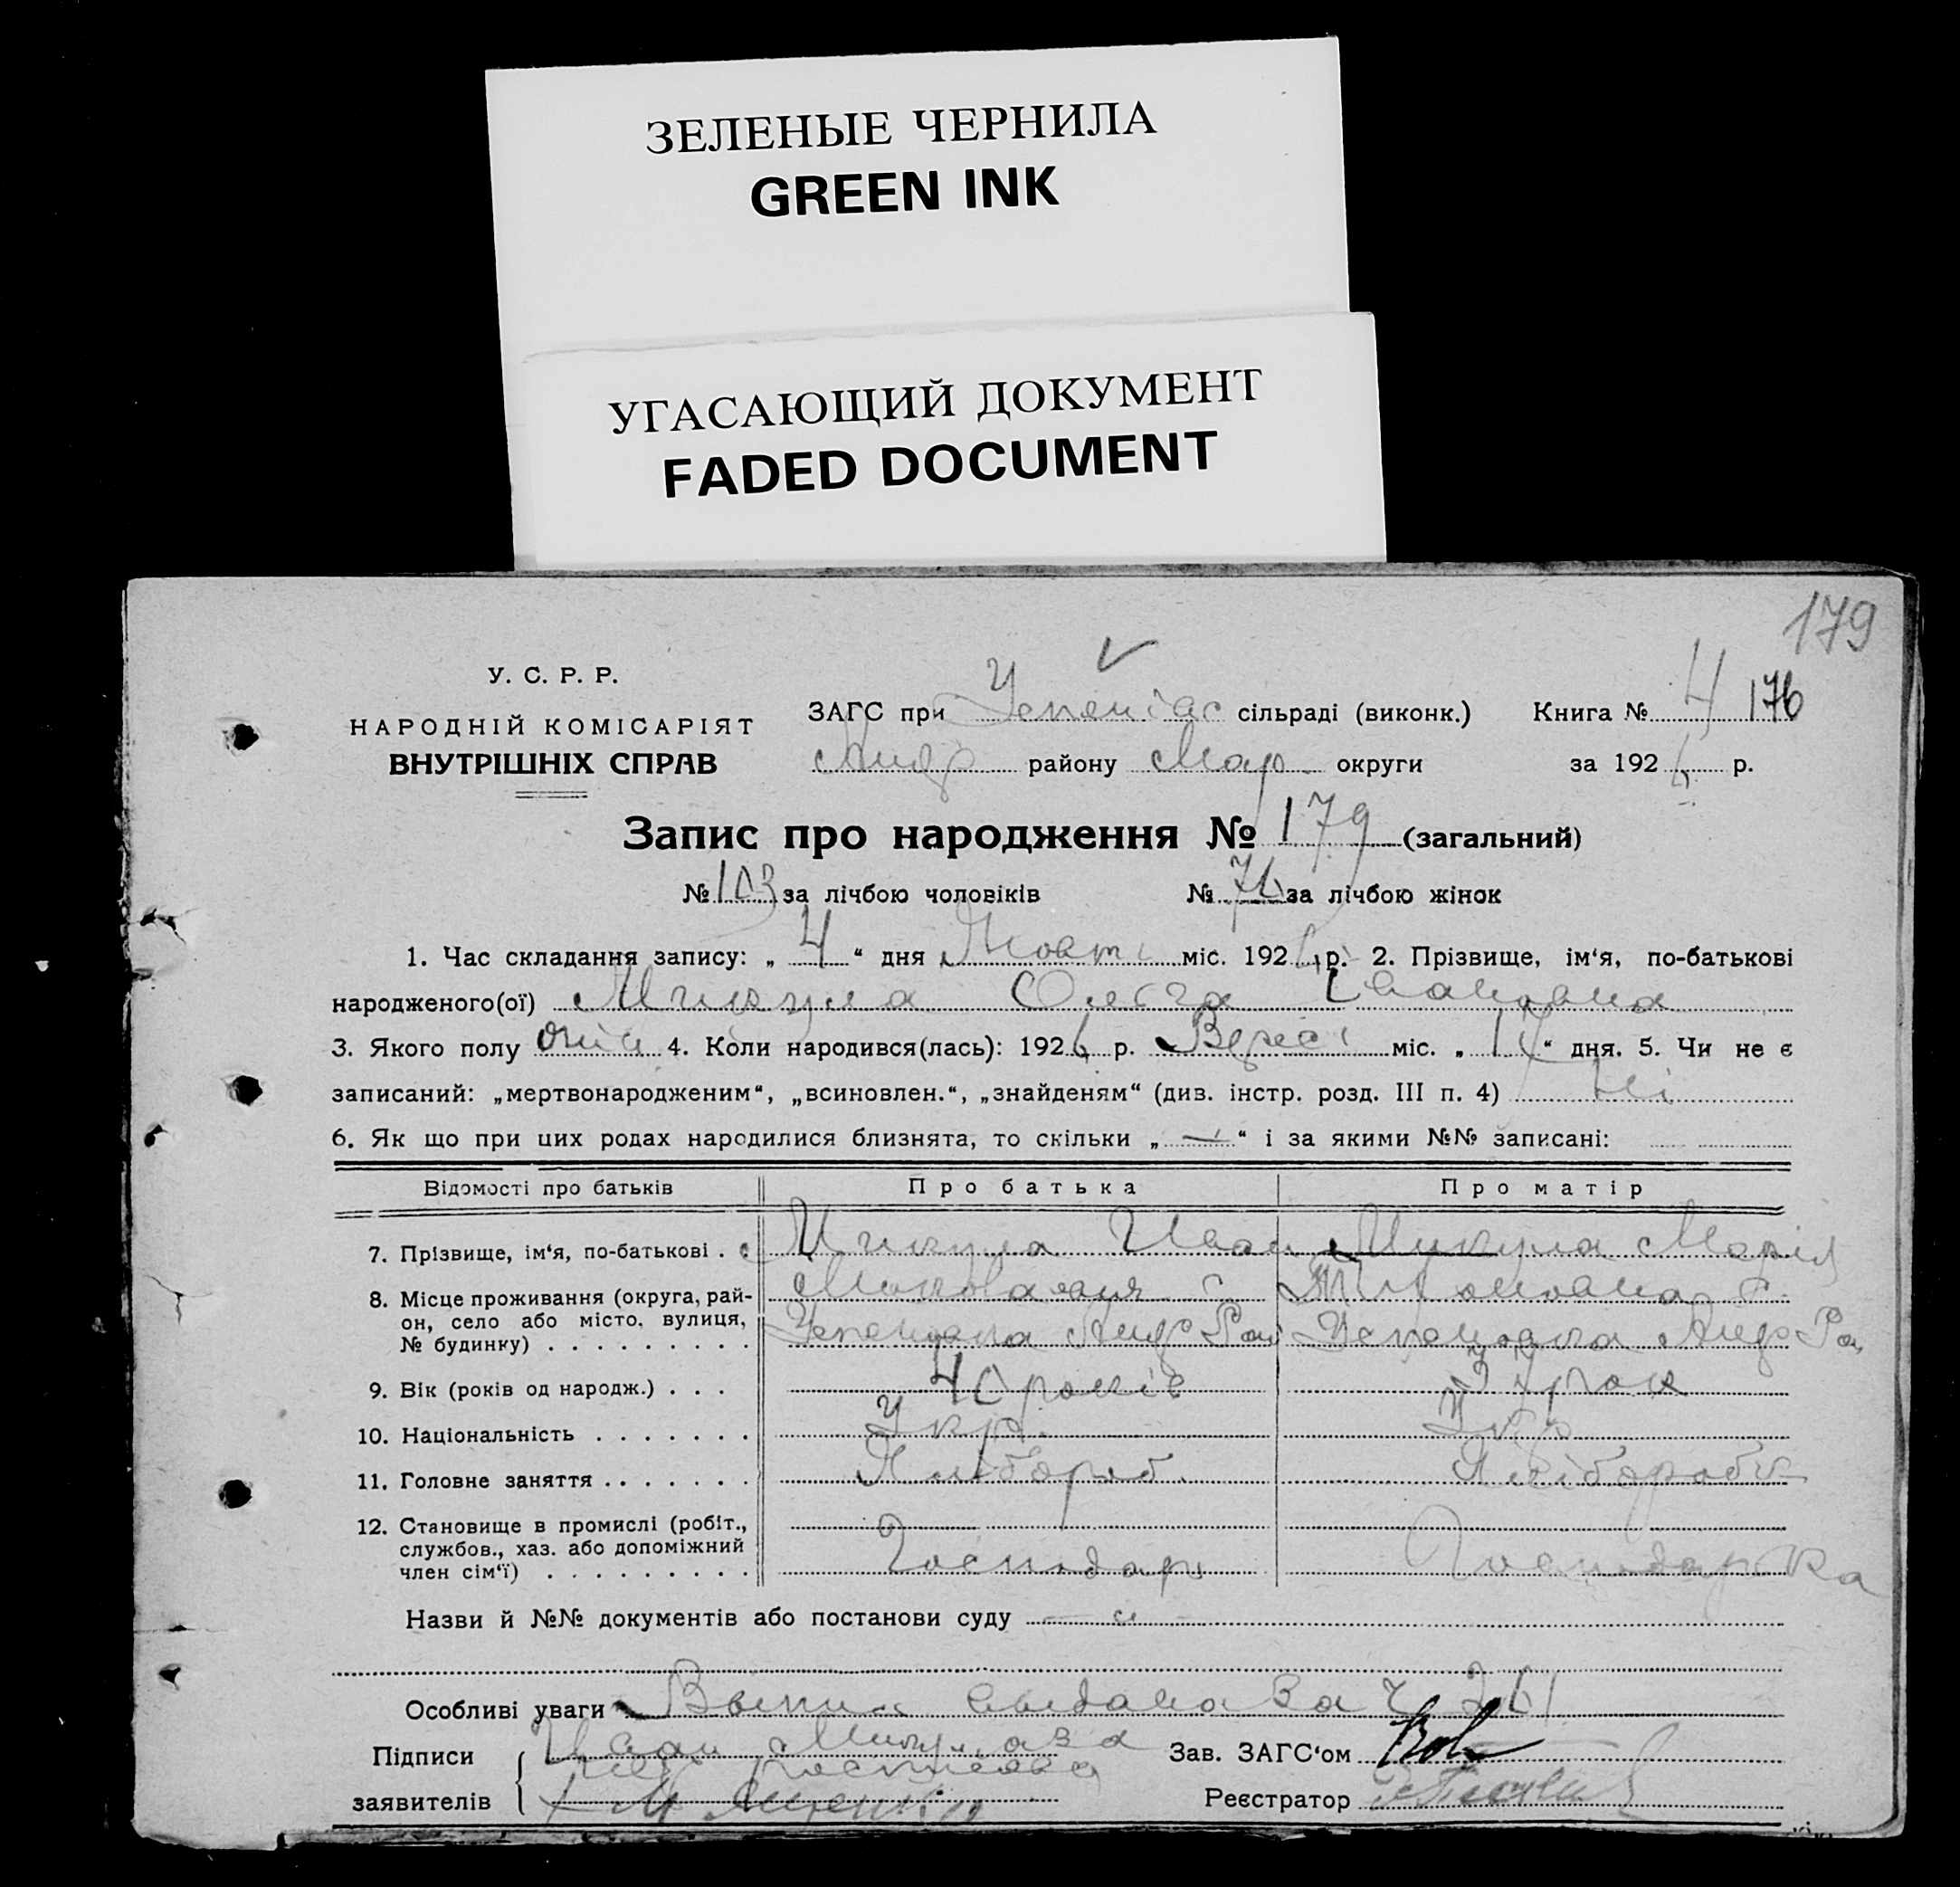 ЗЕЛЕНЫЕ ЧЕРНИЛА
GREEN INK
УГАСАЮЩИЙ ДОКУМЕНТ
FADED DOCUMENT
179
У. С. Р. Р.
НАРОДНІЙ КОМІСАРІЯТ
ВНУТРІШНІХ СПРАВ
ЗАГС при сільраді (виконк.) Книга № 4 176
Андр району Мар округи за 1926 р.
Запис про народження № 179 (загальний)
№ 103 за лічбою чоловіків № 76 за лічбою жінок
1. Час складання запису: „ 4 “ дня Жовт міс. 1926 р. 2. Прізвище, ім‘я, по-батькові
народженого(ої) Микула Ольга Івановна
3. Якого полу жін 4. Коли народився(лась): 1926 р. Верес міс. „ 17 “ дня. 5. Чи не є
записаний: „мертвонародженим“, „всиновлен.“, „знайденям“ (див. інстр. розд. III п. 4) Ні
6. Як що при цих родах народилися близнята, то скільки „ — “ і за якими №№ записані:
Відомості про батьків Про батька Про матір
7. Прізвище, ім‘я, по-батькові . Микула Иван Микула Марія
8. Місце проживання (округа, рай-
он, село або місто, вулиця, Успеновка Андр Рай Успеновка Андр Ра
№ будинку) . . . . . . . . .
9. Вік (років од народж.) . . . 40 років 37 рок
10. Національність . . . . . . . Укр. Укр
11. Головне заняття . . . . . . . Хлібороб. Хліборобк
12. Становище в промислі (робіт.,
службов., хаз. або допоміжний Господарь Господарка
член сім‘ї) . . . . . . . . .
Назви й №№ документів або постанови суду
Особливі уваги Выпис выдана за №
Підписи Иван Микула за
Зав. ЗАГС‘ом
заявителів
Реєстратор